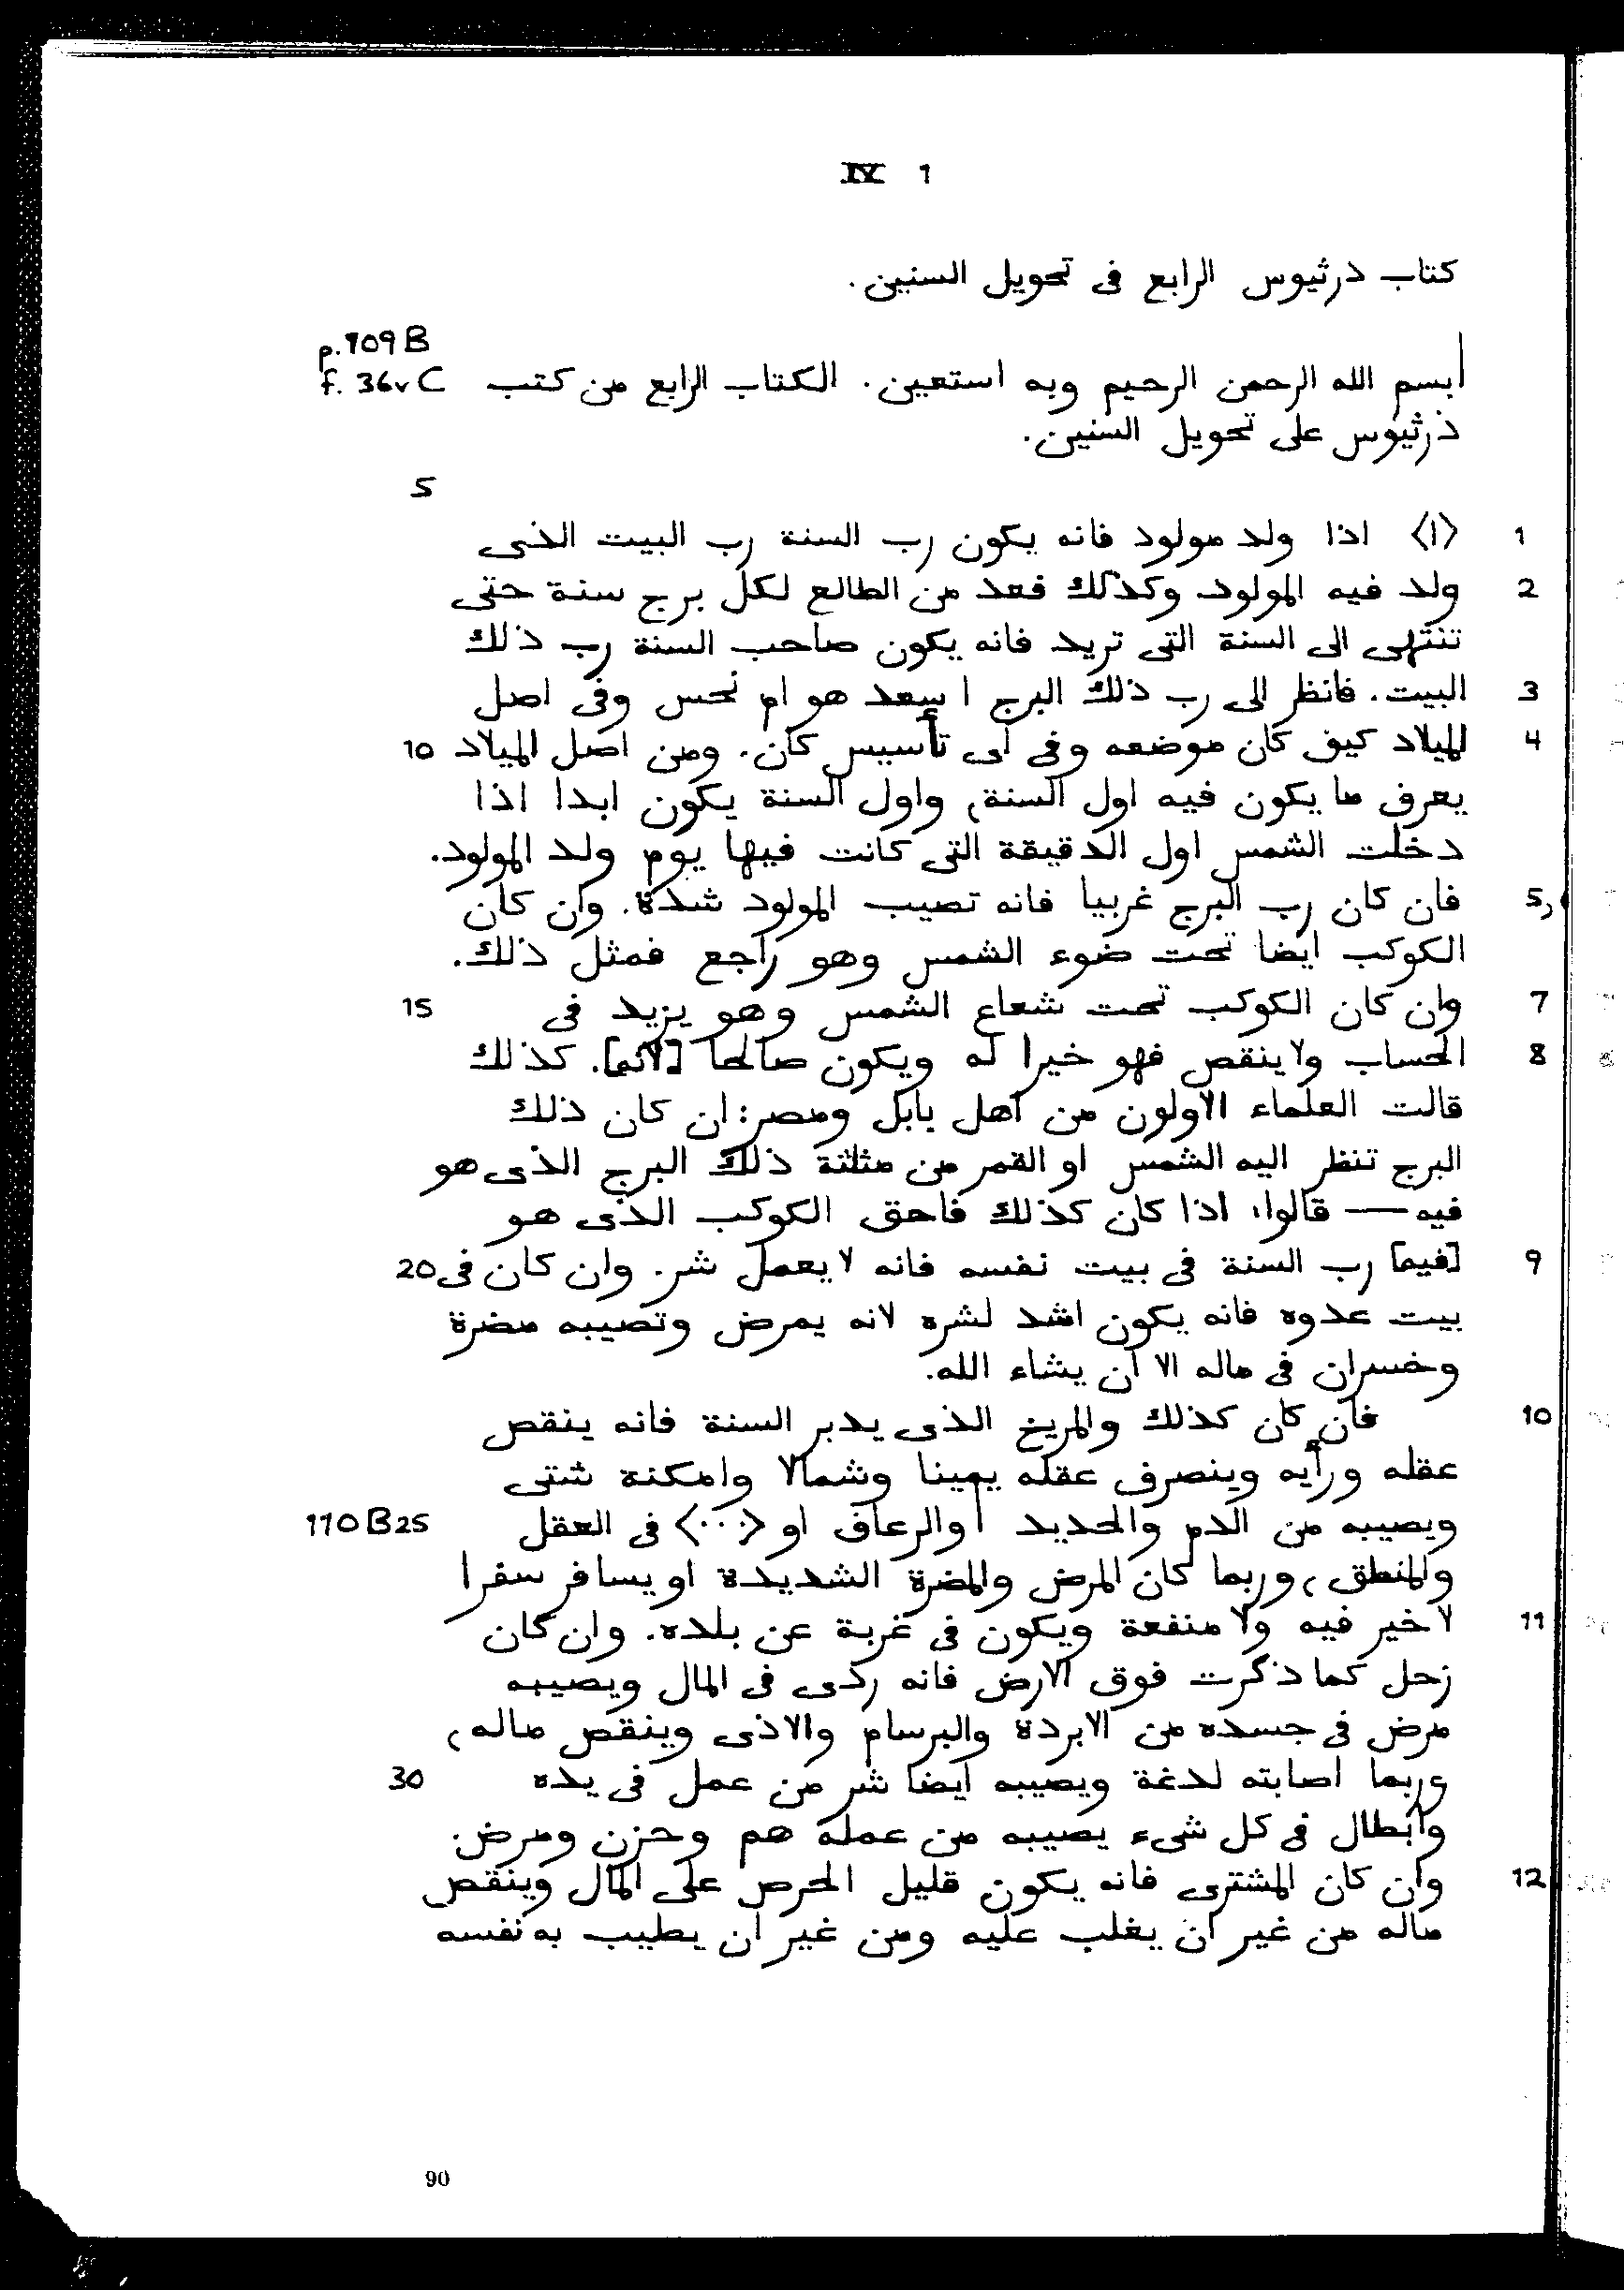 IV 1
كتاب درثيوس الرابع فى تحويل السنين.
p. 109 B
بسم الله الرحمن الرحيم وبه استعين. الكتاب الرابع من كتب f. 36v C
ذرثيوس على تحويل السنين.
5
1 〈ا〉 اذا ولد مولود فانه يكون رب السنة رب البيت الذى
2 ولد فيه المولود وكذلك فعد من الطالع لكل برج سنة حتى
تنتهى الى السنة التى تريد فانه يكون صاحب السنة رب ذلك
3 البيت. فانظر الى رب ذلك البرج ا سعد هو ام نحس وفى اصل
4 الميلاد كيف كان موضعه وفى اى تأسيس كان. ومن اصل الميلاد 10
يعرف ما يكون فيه اول السنة، واول السنة يكون ابدا اذا
دخلت الشمس اول الدقيقة التى كانت فيها يوم ولد المولود.
5, فان كان رب البرج غربيا فانه تصيب المولود شدة. وان كان
الكوكب ايضا تحت ضوء الشمس وهو راجع فمثل ذلك.
7 وان كان الكوكب تحت شعاع الشمس وهو يزيد فى 15
8 الحساب ولا ينقص فهو خيرا له ويكون صالحا [لانه]. كذلك
قالت العلماء الاولون من اهل بابل ومصر: ان كان ذلك
البرج تنظر اليه الشمس او القمر من مثلثة ذلك البرج الذى هو
فيه — قالوا: اذا كان كذلك فاحق الكوكب الذى هو
9 [فيه] رب السنة فى بيت نفسه فانه لا يعمل شر. وان كان فى 20
بيت عدوه فانه يكون اشد لشره لانه يمرض وتصيبه مضرة
وخسران فى ماله الا ان يشاء الله.
10 فان كان كذلك والمريخ الذى يدبر السنة فانه ينقص
عقله ورأيه وينصرف عقله يمينا وشمالا وامكنة شتى
ويصيبه من الدم والحديد | والرعاف او 〈...〉 فى العقل 110 B 25
والمنطق، وربما كان المرض والمضرة الشديدة او يسافر سفرا
11 لا خير فيه ولا منفعة ويكون فى غربة عن بلده. وان كان
زحل كما ذكرت فوق الارض فانه ردى فى المال ويصيبه
مرض فى جسده من الابردة والبرسام والاذى وينقص ماله،
وربما اصابته لدغة ويصيبه ايضا شر من عمل فى يده 30
وابطال فى كل شىء يصيبه من عمله هم وحزن ومرض.
12 وان كان المشترى فانه يكون قليل الحرص على المال وينقص
ماله من غير ان يغلب عليه ومن غير ان يطيب به نفسه
90